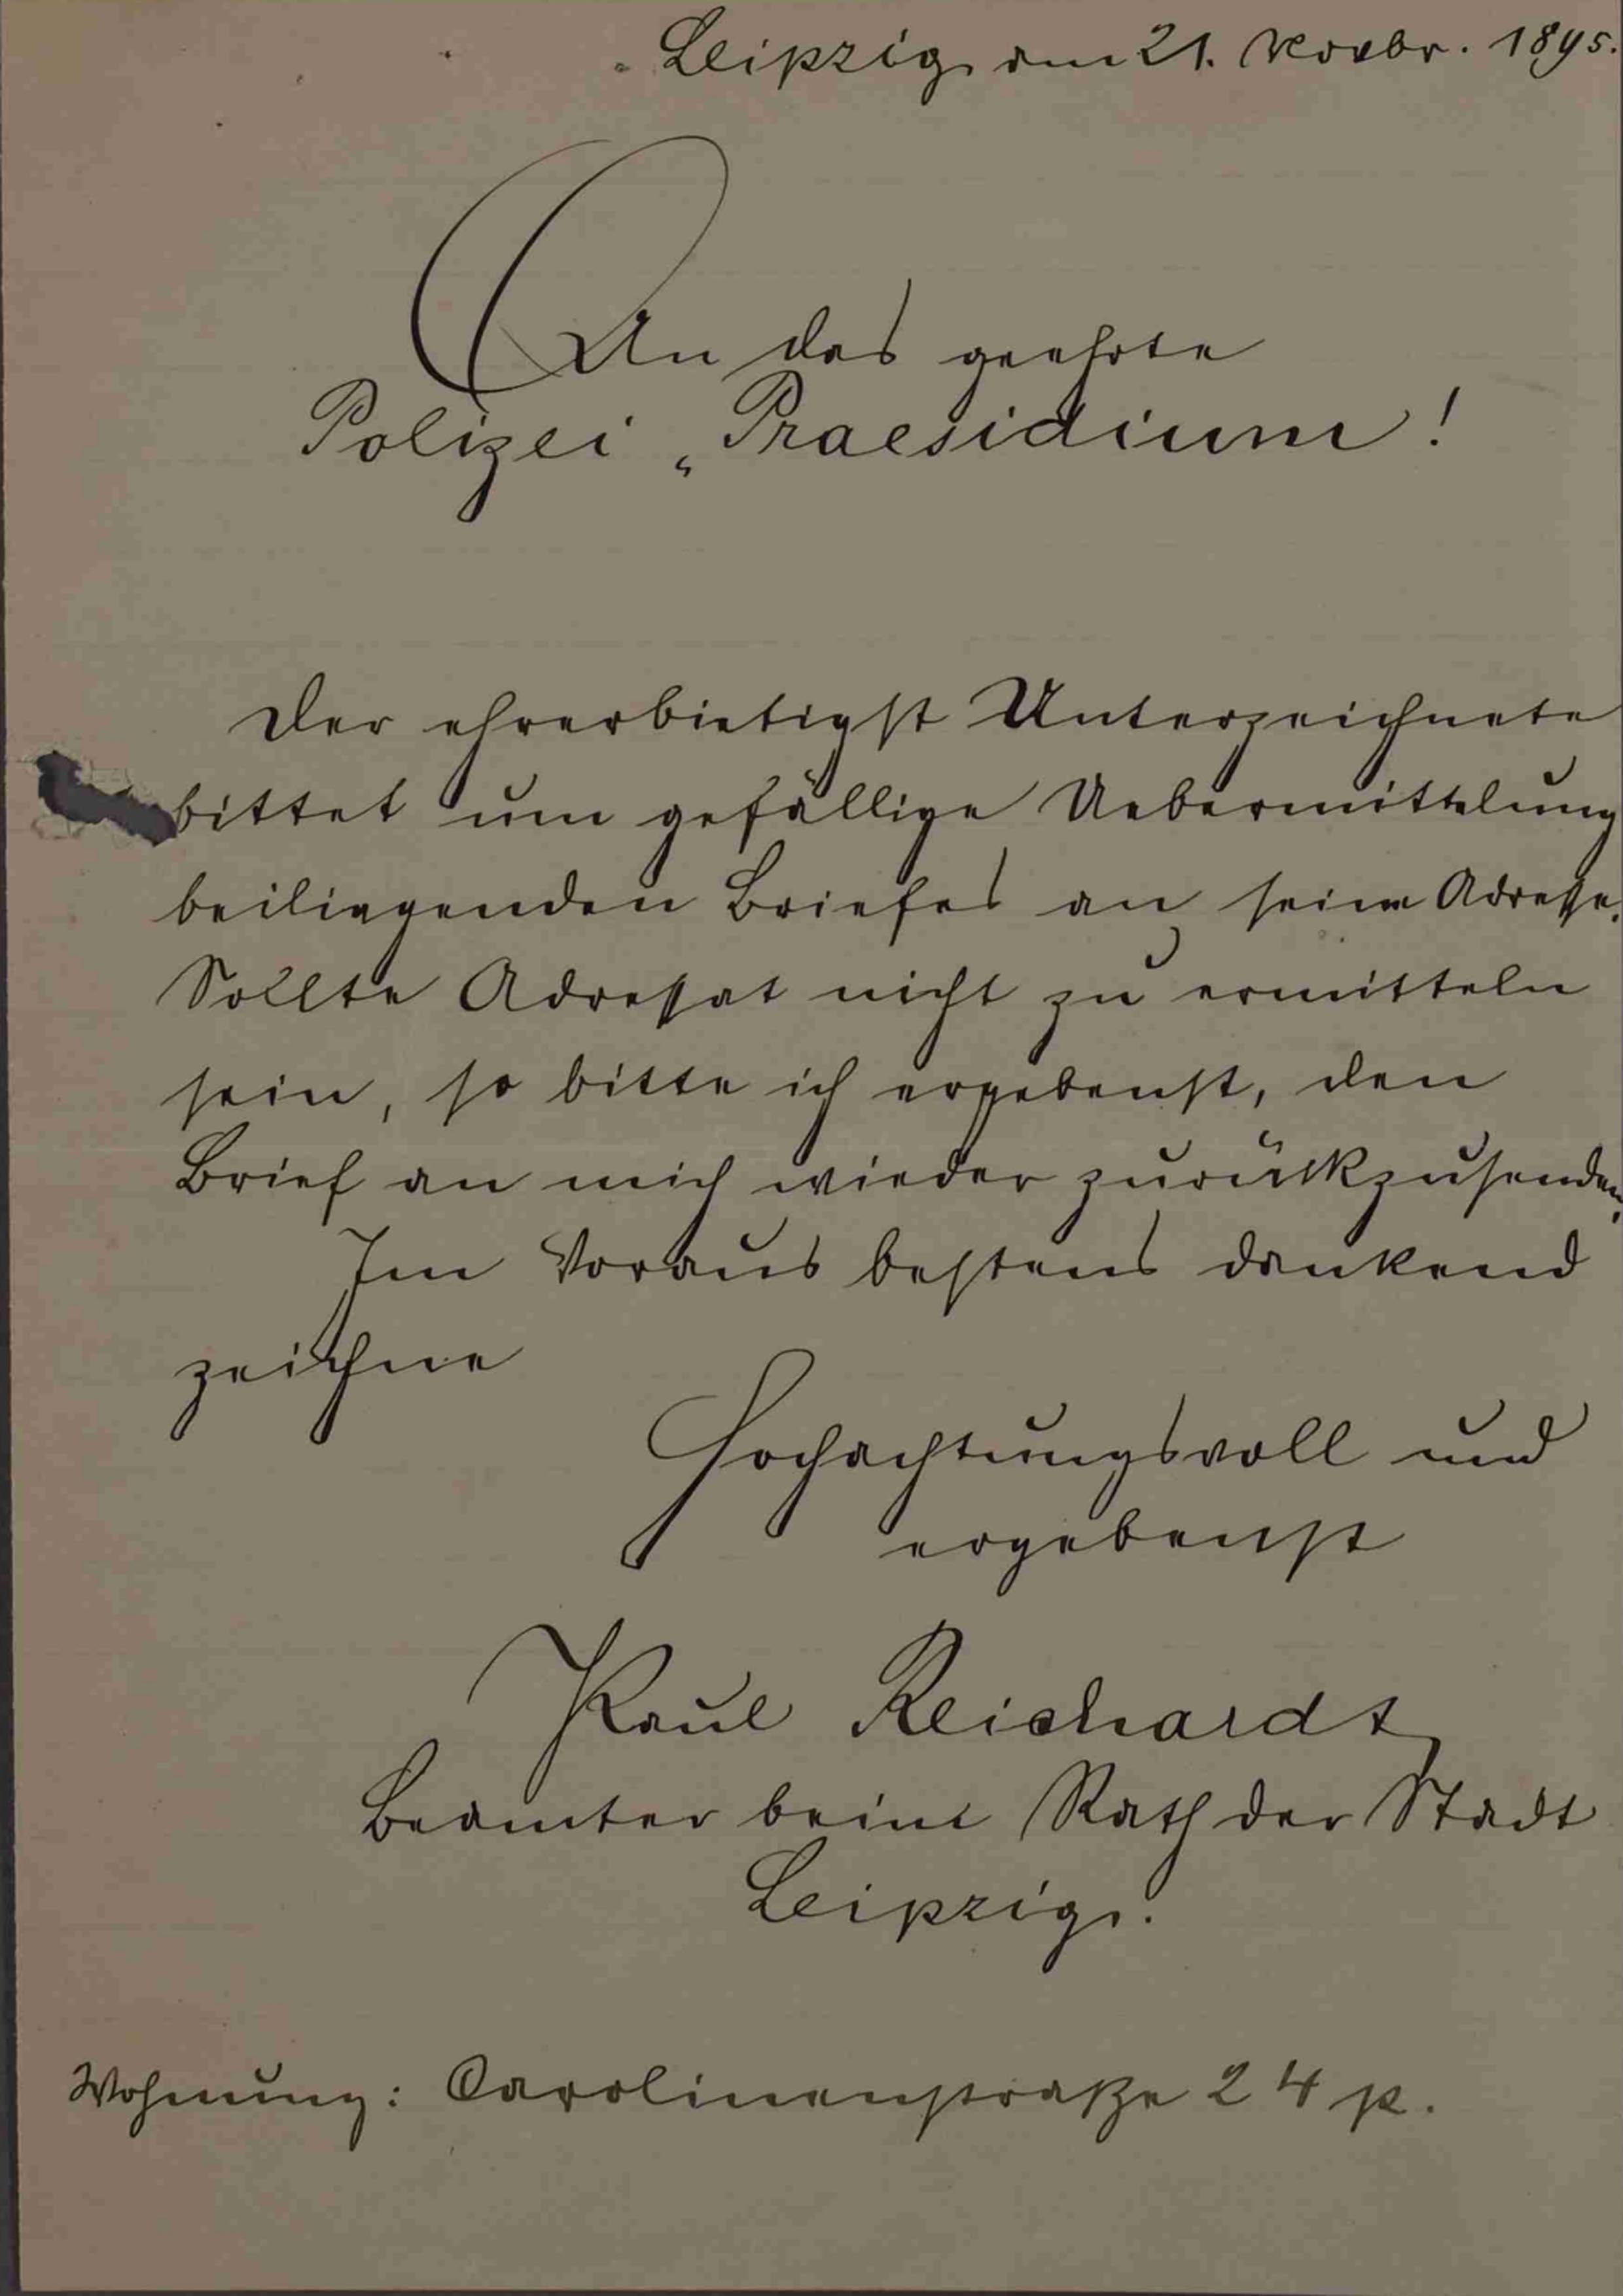 Leipzig, am 21. Novbr. 1895.
An das geehrte
Polizei „Praesidium!
Der ehrerbietigst Unterzeichnete
bittet um gefällige Uebermittelung
beiliegenden Briefes an seine Adresse.
Sollte Adressat nicht zu ermitteln
sein, so bitte ich ergebenst, den
Brief an mich wieder zurückzusenden.
Im Voraus bestens dankend
zeichne
Hochachtungsvoll und
ergebenst
Paul Reichardt,
Beamter beim Rath der Stadt
Leipzig.
Wohnung: Carolinenstraße 24 p.